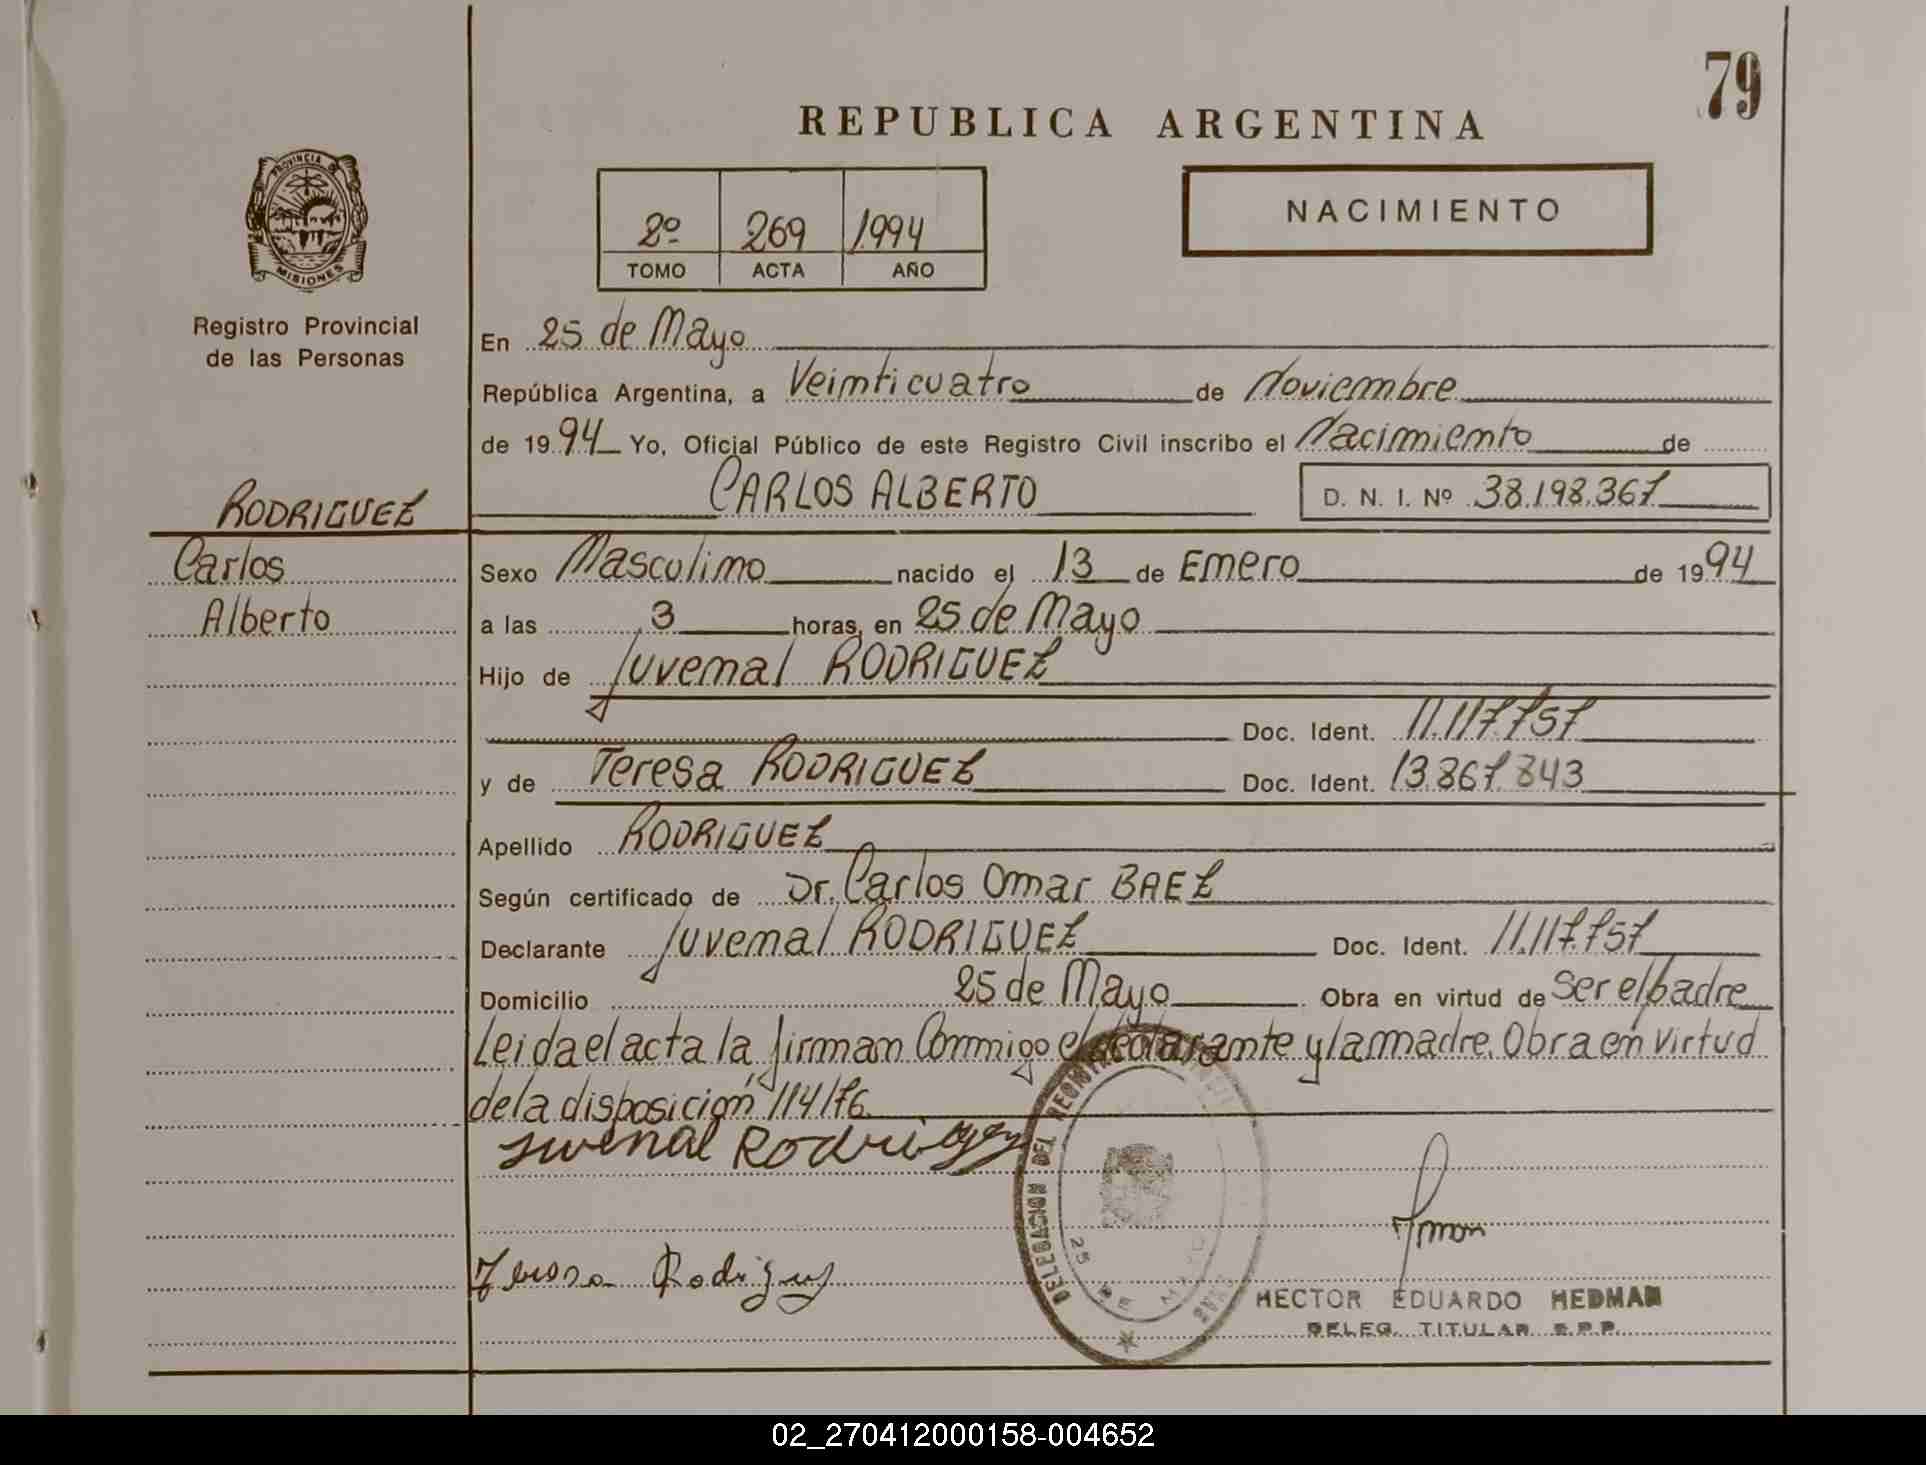 79
REPUBLICA ARGENTINA
PROVINCIA DE
MISIONES
Registro Provincial
de las Personas
2º 269 1994
TOMO ACTA AÑO
NACIMIENTO
En 25 de Mayo
República Argentina, a Veinticuatro de Noviembre
de 1994 Yo, Oficial Público de este Registro Civil inscribo el Nacimiento de
CARLOS ALBERTO D. N. I. Nº 38.198.367
RODRIGUEZ
Carlos
Alberto
Sexo Masculino nacido el 13 de Enero de 1994
a las 3 horas, en 25 de Mayo
Hijo de Juvenal RODRIGUEZ
Doc. Ident. 11.117.757
y de Teresa RODRIGUEZ Doc. Ident. 13.867.843
Apellido RODRIGUEZ
Según certificado de Dr. Carlos Omar BAEZ
Declarante Juvenal RODRIGUEZ Doc. Ident. 11.117.757
Domicilio 25 de Mayo Obra en virtud de Ser el padre
Leida el acta la firman Conmigo el declarante y la madre. Obra en virtud
de la disposición 114/76
Juvenal Rodriguez
Teresa Rodriguez
DELEGACION DEL REGISTRO
25 DE MAYO
HECTOR EDUARDO HEDMAN
DELEG. TITULAR R.P.P.
02_270412000158-004652